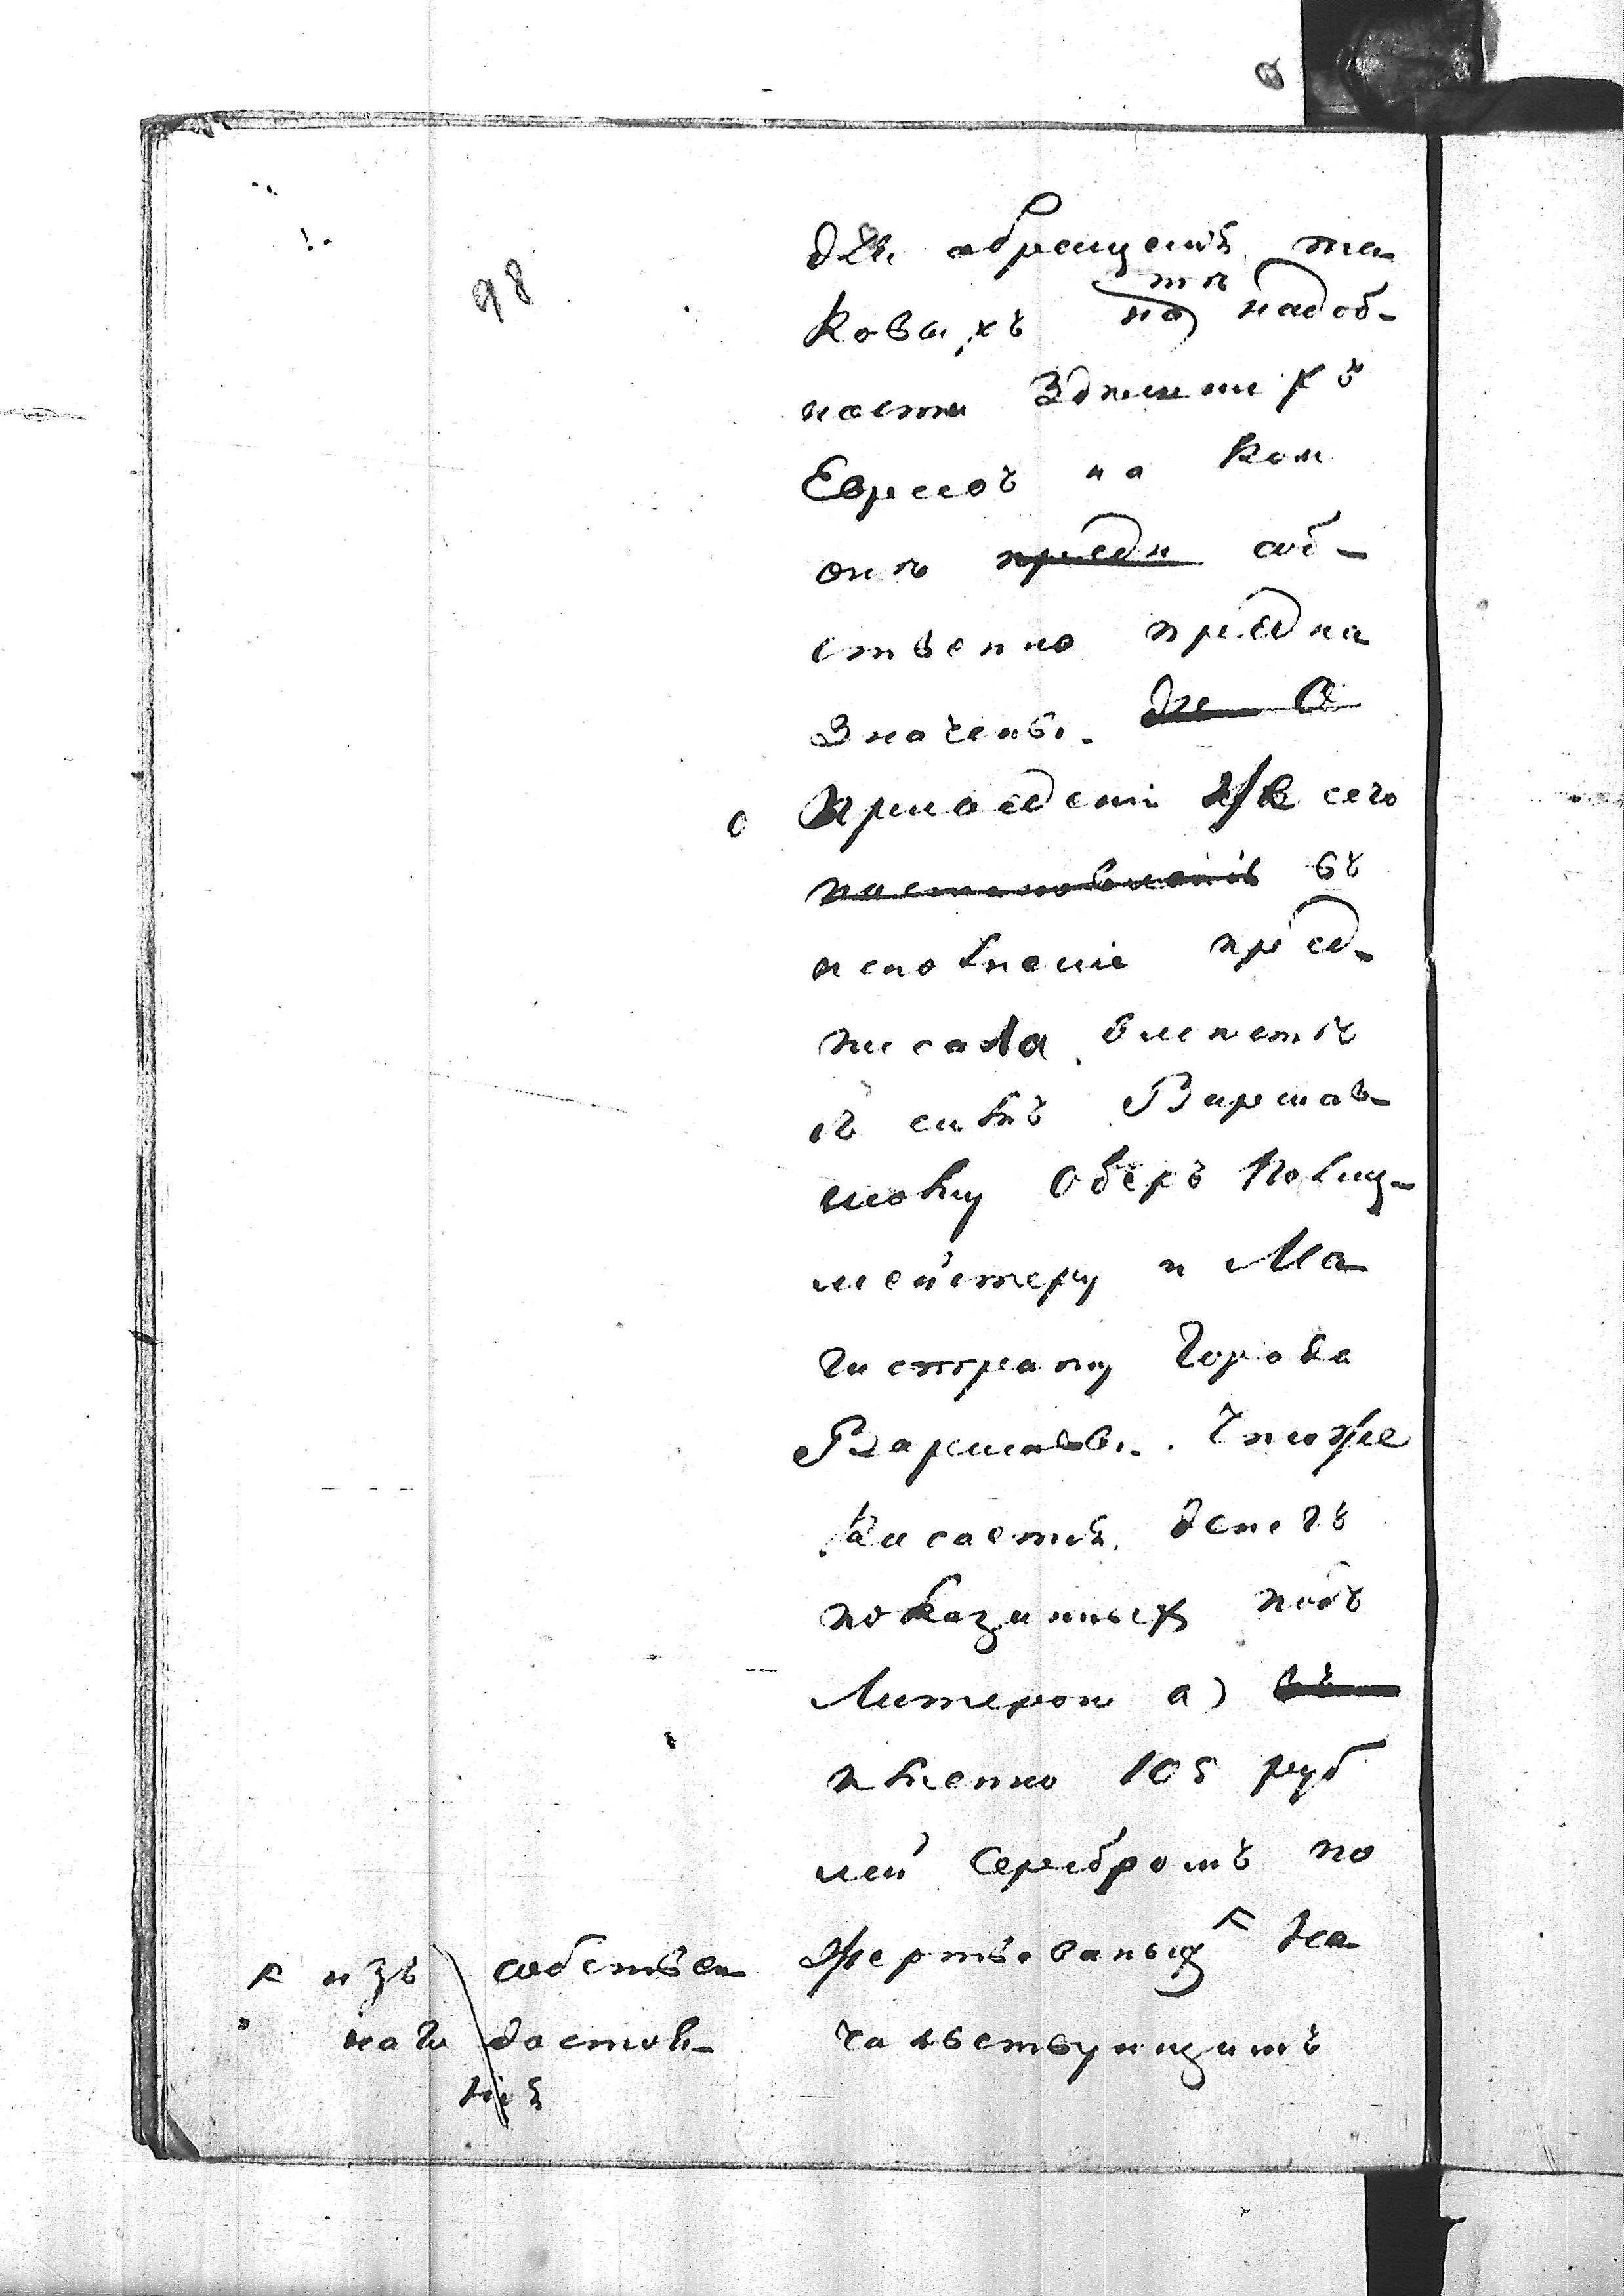 98
для обращенія та-
ковыхъ на тѣ надоб-
ности Здѣшнихъ
Евреевъ на кои
онѣ предн соб-
ственно предна
значены. для О
о приведеніи \ сего
постановленія въ
исполненіе пред-
писала вмѣстѣ
съ симъ Варшав-
скому Оберъ Полиц-
мейстеру и Ма-
гистрату Города
Варшавы. Чтоже
касается денегъ
показанныхъ подъ
Литерою а) въ
именно 105 руб
лей серебромъ по
жертвованныхъ На
чальствующимъ
изъ собствен
наго достоя-
нія